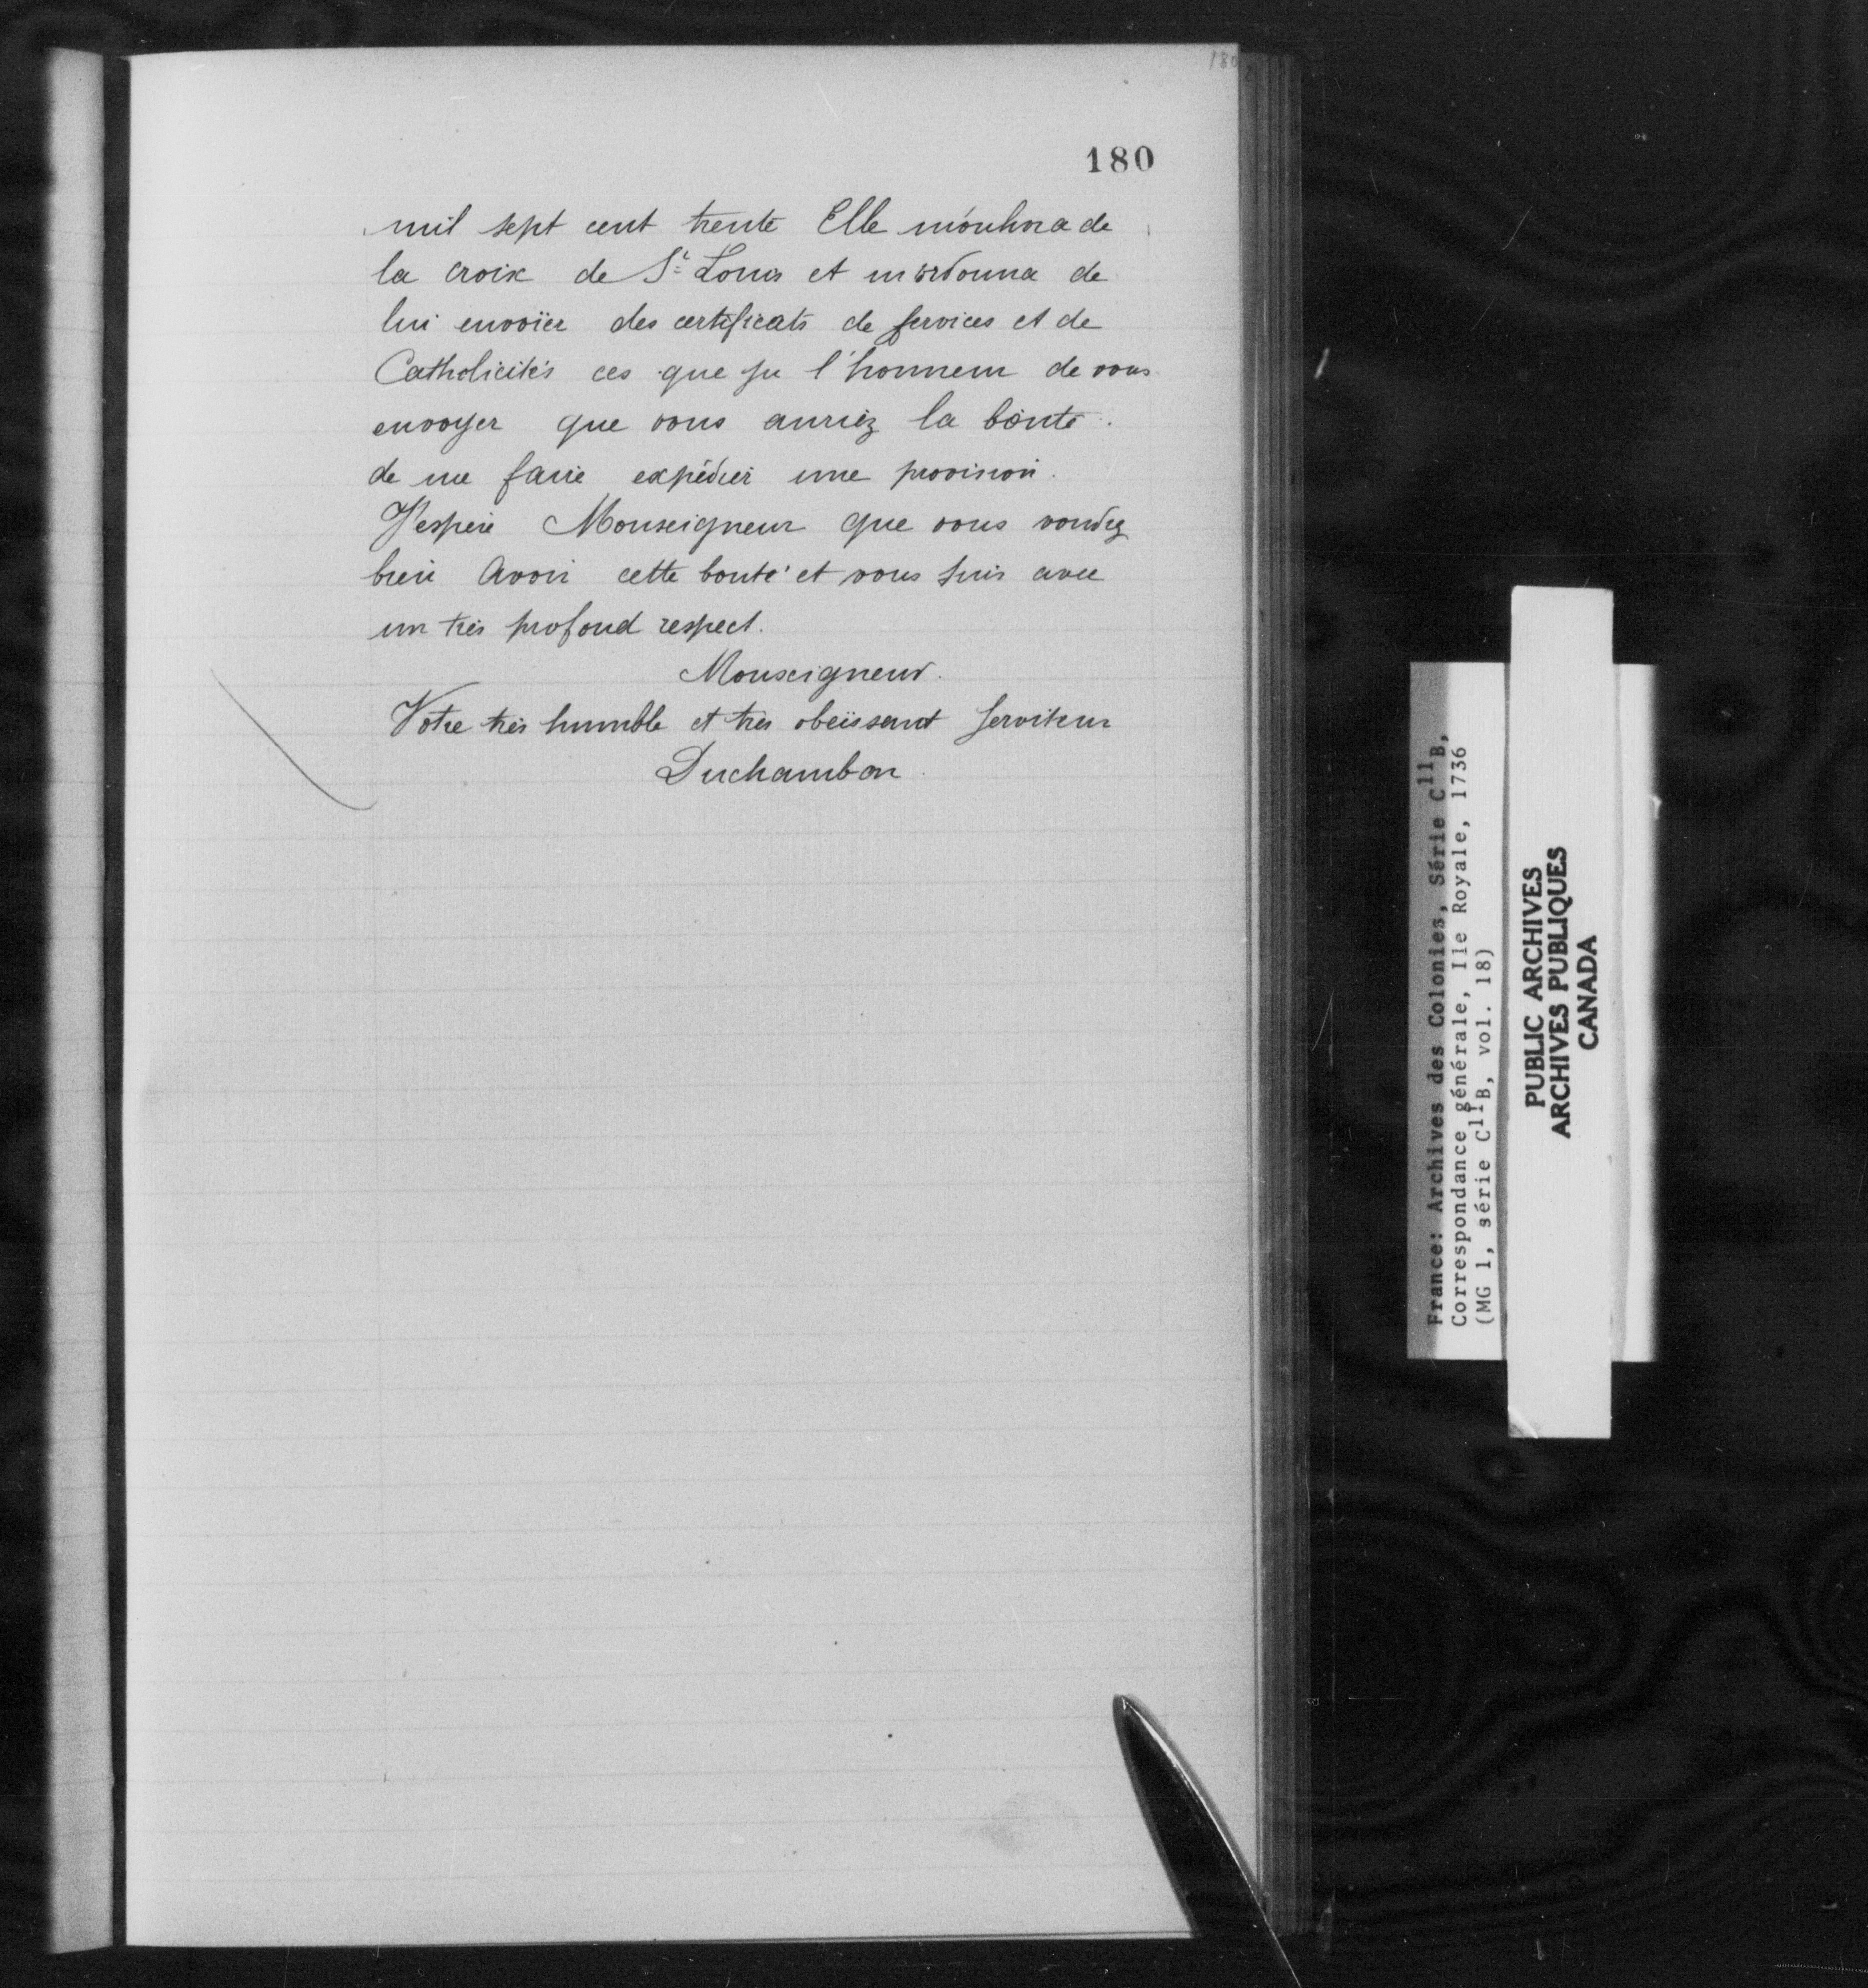 180
180
mil sept cent trente Elle m'onhora de
la croix de St Louis et m'ordonna de
lui envoïer des certificats de services et de
Catholicités ces que ju l'honneur de vous
envoyer que vous auriéz la bonté.
de me faire expédier une provision.
J'espere Monseigneur que vous voudrez
bien Avoir cette bonté et vous suis avec
un très profond respect.
Monseigneur.
Votre très humble et très obeïssant serviteur
Duchambon.
France: Archives des Colonies, Série C11B,
Correspondance générale, Ile Royale, 1736
(MG 1, série C11B, vol. 18)
PUBLIC ARCHIVES
ARCHIVES PUBLIQUES
CANADA